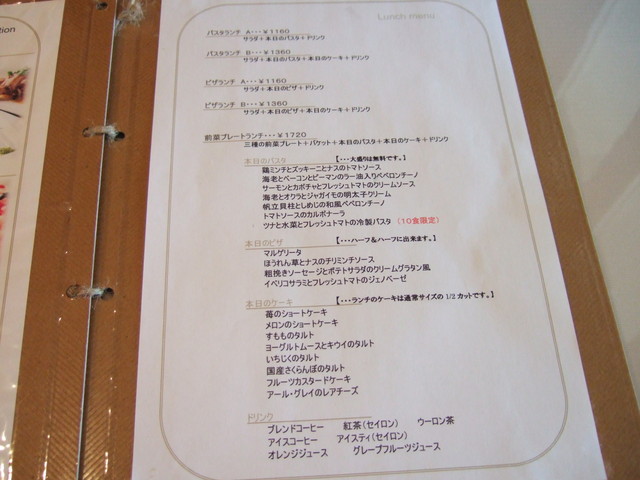 tion
Lunch menu
パスタランチ A・・・￥1160
サラダ＋本日のパスタ＋ドリンク
パスタランチ B・・・￥1360
サラダ＋本日のパスタ＋本日のケーキ＋ドリンク
ピザランチ A・・・￥1160
サラダ＋本日のピザ＋ドリンク
ピザランチ B・・・￥1360
サラダ＋本日のピザ＋本日のケーキ＋ドリンク
前菜プレートランチ・・・￥1720
三種の前菜プレート＋バケット＋本日のパスタ＋本日のケーキ＋ドリンク
本日のパスタ 【・・・大盛りは無料です。】
鶏ミンチとズッキーニとナスのトマトソース
海老とベーコンとピーマンのラー油入りペペロンチーノ
サーモンとカボチャとフレッシュトマトのクリームソース
海老とオクラとジャガイモの明太子クリーム
帆立貝柱としめじの和風ペペロンチーノ
トマトソースのカルボナーラ
ツナと水菜とフレッシュトマトの冷製パスタ （10食限定）
本日のピザ 【・・・ハーフ＆ハーフに出来ます。】
マルゲリータ
ほうれん草とナスのチリミンチソース
粗挽きソーセージとポテトサラダのクリームグラタン風
イベリコサラミとフレッシュトマトのジェノベーゼ
本日のケーキ 【・・・ランチのケーキは通常サイズの 1/2 カットです。】
苺のショートケーキ
メロンのショートケーキ
すもものタルト
ヨーグルトムースとキウイのタルト
いちじくのタルト
国産さくらんぼのタルト
フルーツカスタードケーキ
アール・グレイのレアチーズ
ドリンク
ブレンドコーヒー 紅茶（セイロン） ウーロン茶
アイスコーヒー アイスティ（セイロン）
オレンジジュース グレープフルーツジュース